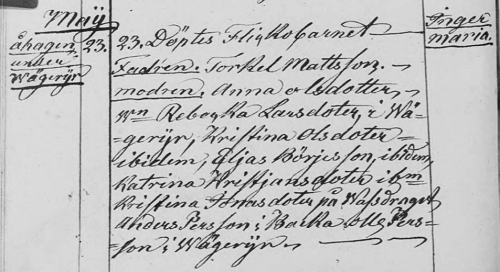 Maÿ
åhagen
under
Wägerÿr
23.
23. Döptes Flickobarnet
Fadren: Torkel Mattsson.
modren; Anna olsdotter,
wn Rebecka Larsdoter, i Wä-
gerÿr, Kristina Olsdoter
ibidem, Eljas Börjesson, ibidem,
Katrina Kristjansdoter ibm
Kristina Anasdoter på Wassdraget
Anders Persson i Backa olle Pers-
son i Wägerÿr
Inger
maria.